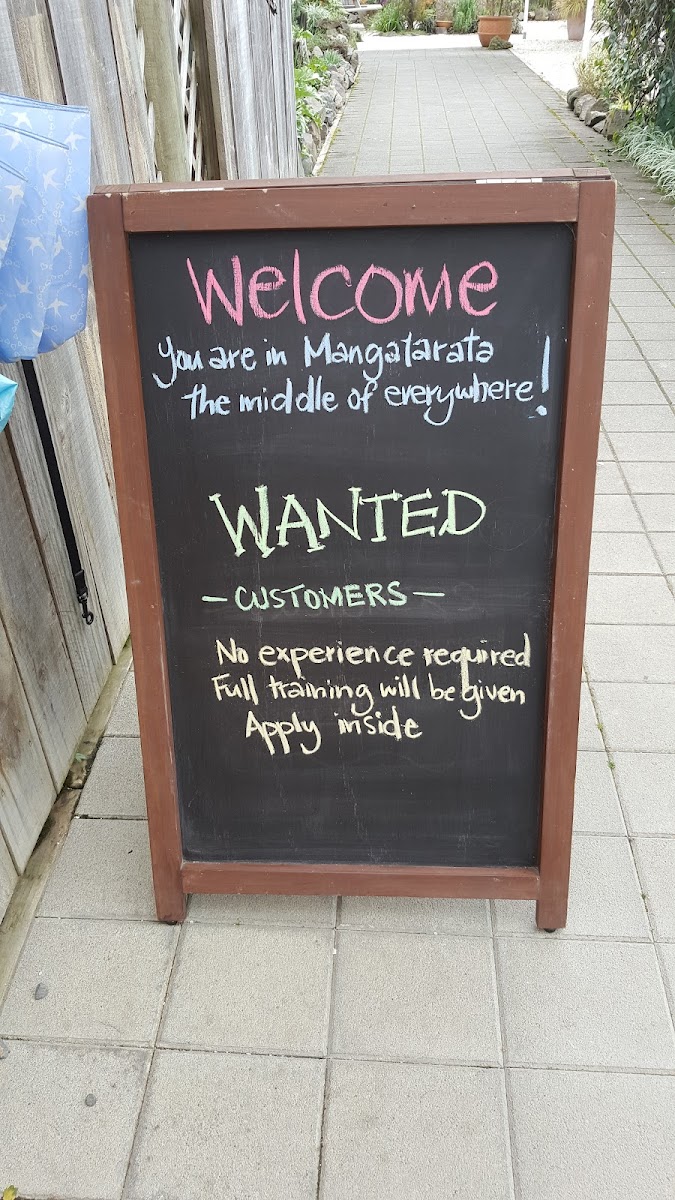 Welcome
You are in Mangatarata
the middle of everywhere!
WANTED
- CUSTOMERS -
No experience required
Full training will be given
Apply inside